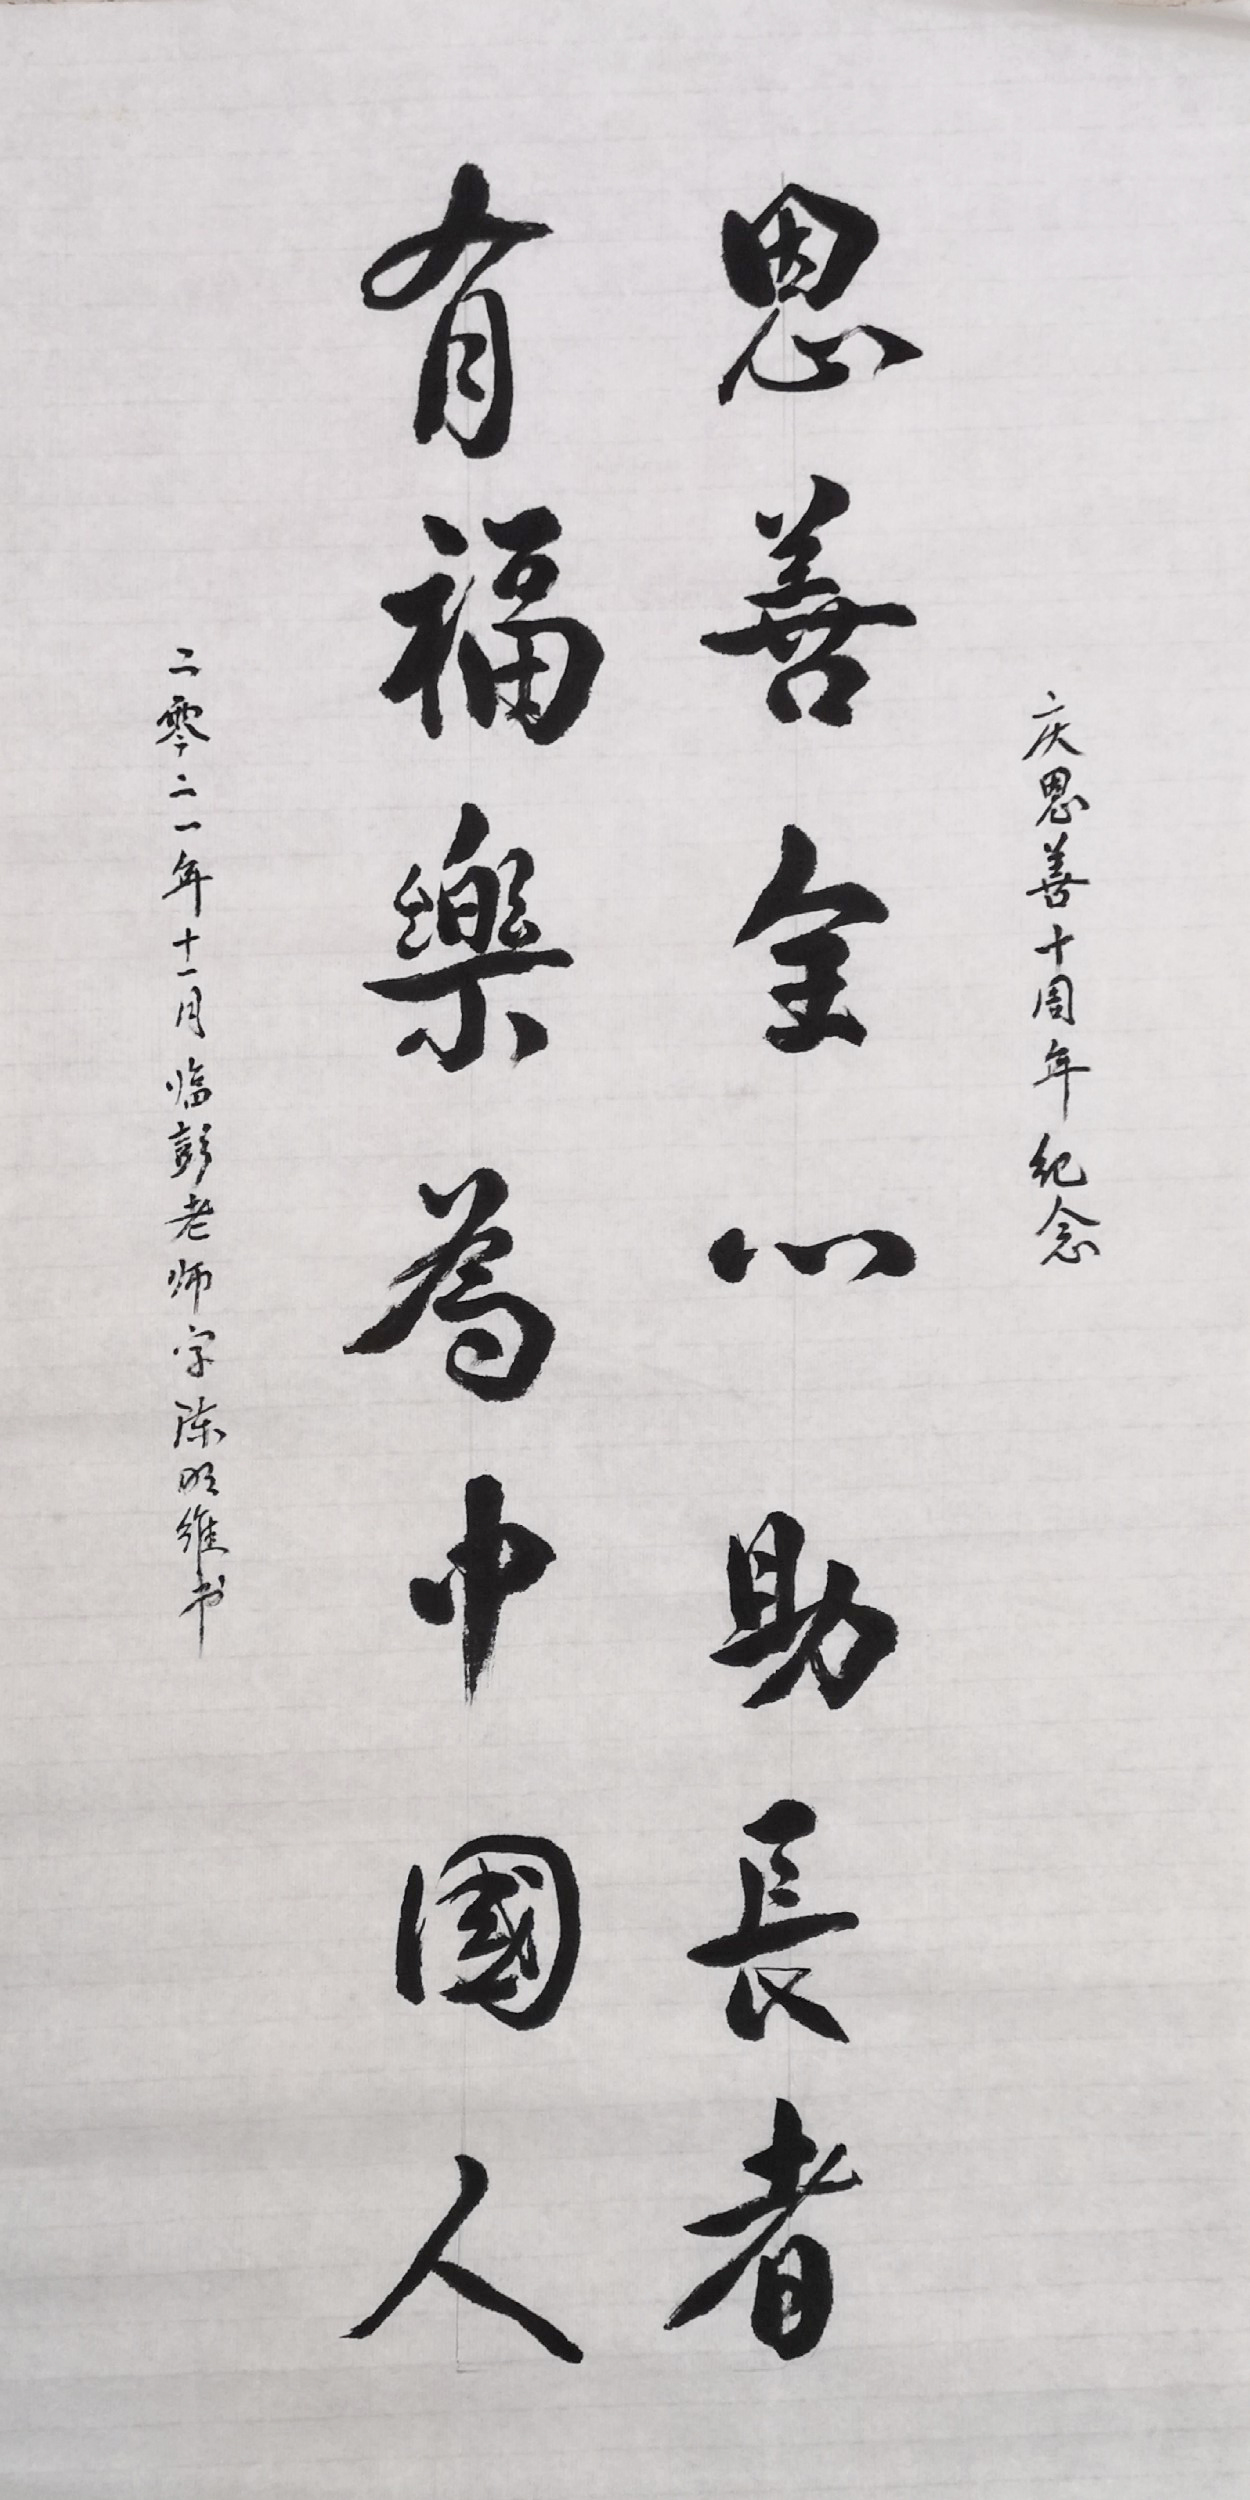 庆恩善十周年纪念
恩善全心助長者
有福樂為中國人
二零二一年十一月临彭老师字陈明维书